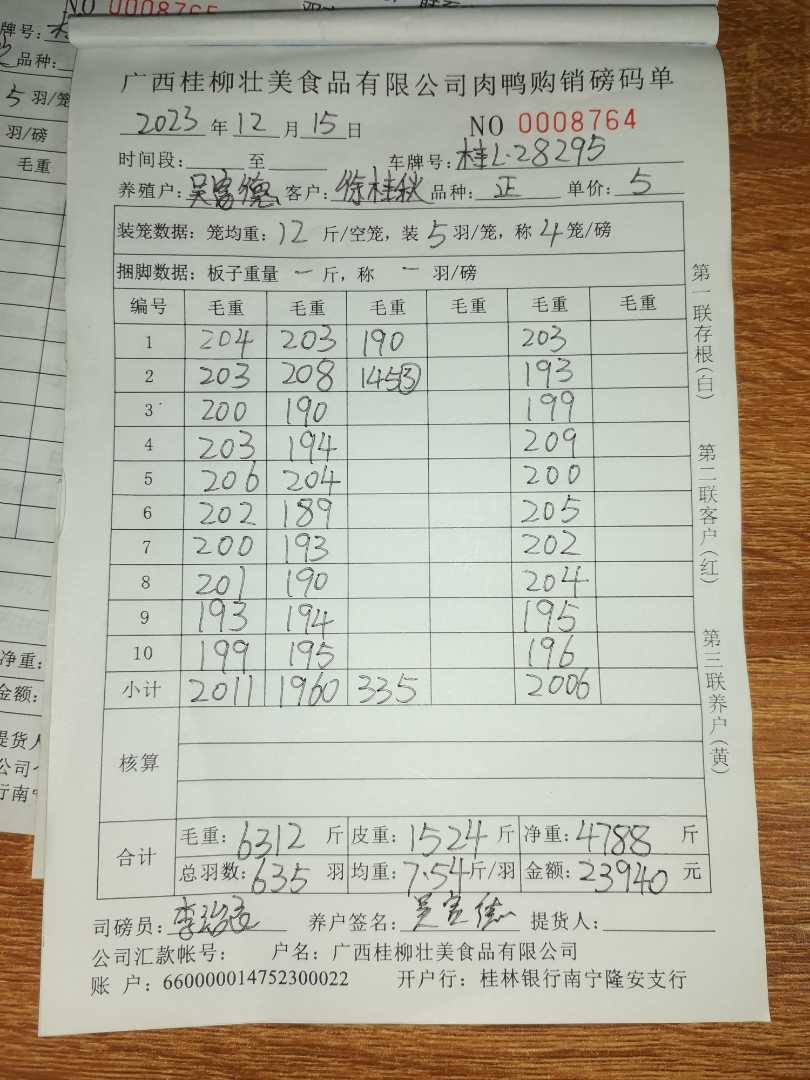 NO 0008765
牌号:
品种:
5 羽/笼
羽/磅
毛重
净重:
金额:
提货人
广西桂柳壮美食品有限公司肉鸭购销磅码单
2023年12月15日 NO 0008764
时间段:____至____ 车牌号:桂L·28295
养殖户:吴富德 客户:徐桂秋 品种:正 单价:5
装笼数据:笼均重:12斤/空笼,装5羽/笼,称4笼/磅
捆脚数据:板子重量 一 斤,称 一 羽/磅
编号 毛重 毛重 毛重 毛重 毛重 毛重
1 204 203 190 203
2 203 208 145③ 193
3 200 190 199
4 203 194 209
5 206 204 200
6 202 189 205
7 200 193 202
8 201 190 204
9 193 194 195
10 199 195 196
小计 2011 1960 335 2006
核算
合计 毛重:6312斤 皮重:1524斤 净重:4788斤
总羽数:635羽 均重:7.54斤/羽 金额:23940元
司磅员:李 养户签名:吴富德 提货人:
公司汇款帐号: 户名:广西桂柳壮美食品有限公司
账 户:660000014752300022 开户行:桂林银行南宁隆安支行
第一联存根(白) 第二联客户(红) 第三联养户(黄)